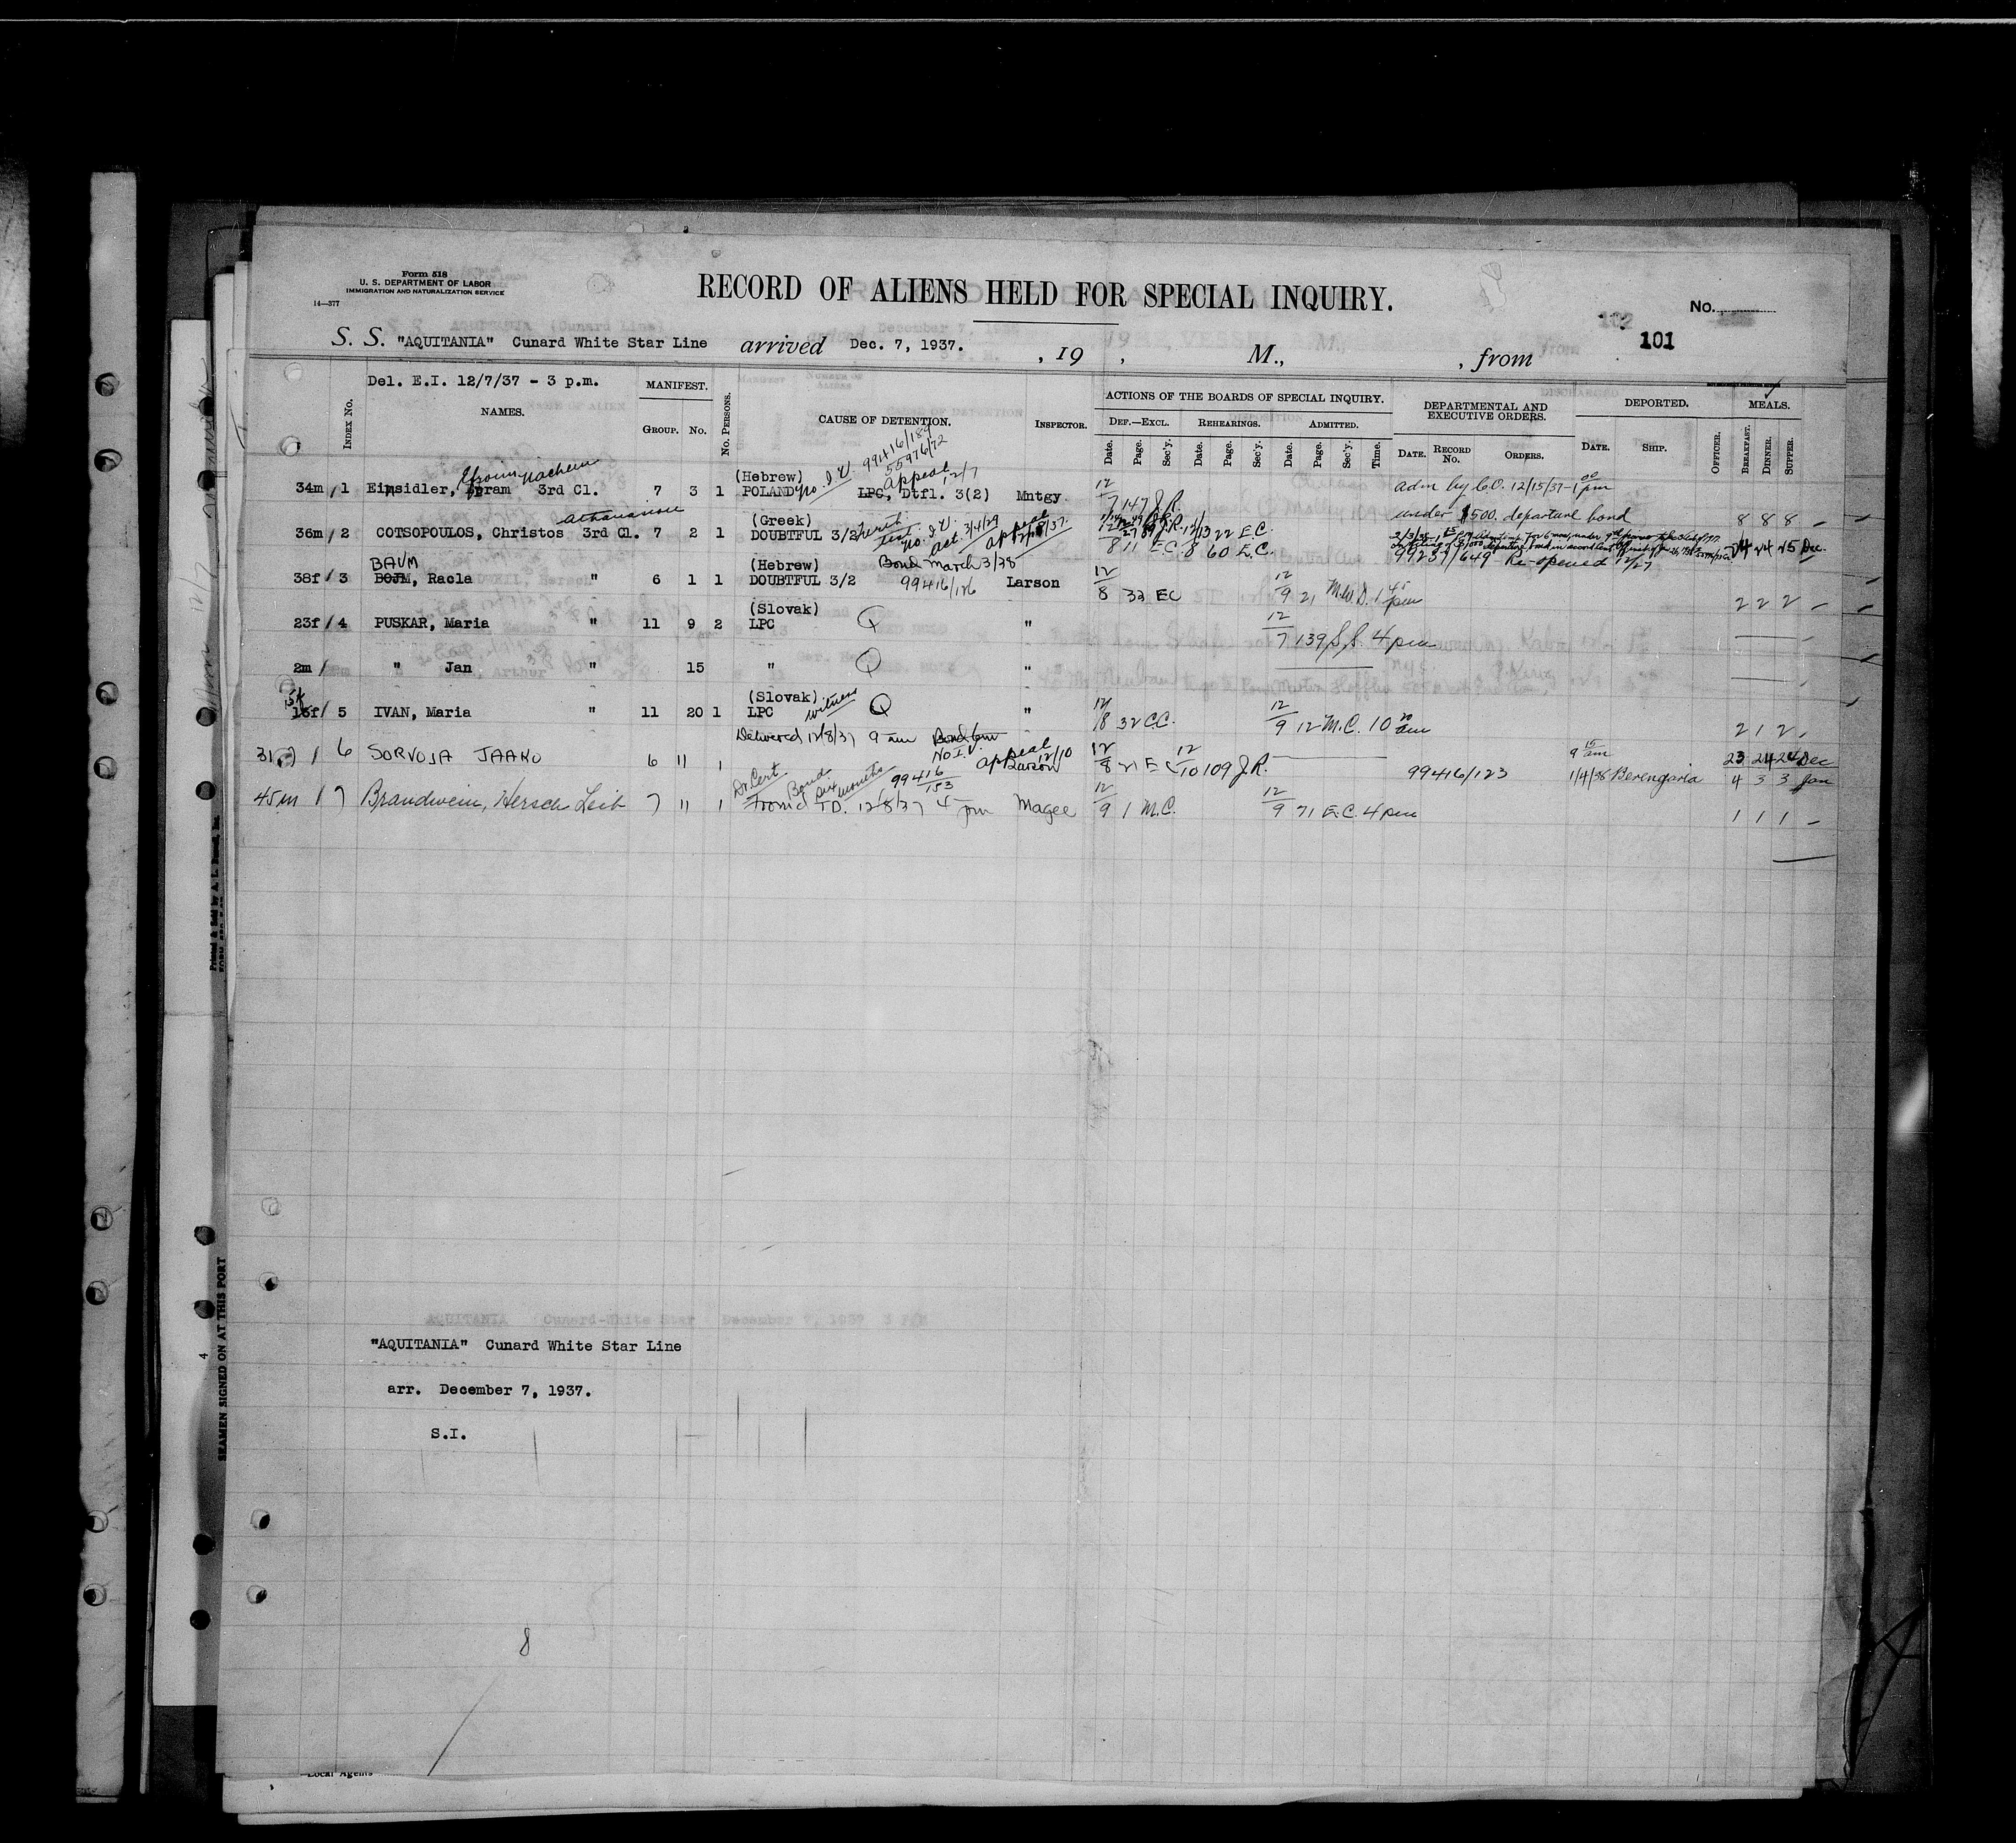 Form 518
U. S. DEPARTMENT OF LABOR
IMMIGRATION AND NATURALIZATION SERVICE
14—377
RECORD OF ALIENS HELD FOR SPECIAL INQUIRY.
No.
101
S. S. "AQUITANIA" Cunard White Star Line arrived Dec. 7, 1937. , 19 , M., , from
Del. E.I. 12/7/37 - 3 p.m.
INDEX No. NAMES. MANIFEST. GROUP. No. No. PERSONS. CAUSE OF DETENTION. INSPECTOR. ACTIONS OF THE BOARDS OF SPECIAL INQUIRY. DEF.—EXCL. REHEARINGS. ADMITTED. DEPARTMENTAL AND EXECUTIVE ORDERS. DEPORTED. MEALS.
Date. Page. Sec'y. Date. Page. Sec'y. Date. Page. Sec'y. Time. DATE. RECORD No. ORDERS. DATE. SHIP. OFFICER. BREAKFAST. DINNER. SUPPER.
99416/189
55976/72
Appeal 12/7
34m / 1 Einsidler, 3rd Cl. 7 3 1 (Hebrew) POLAND no. I.V. LPC, Dtfl. 3(2) Mntgy. 12/7 147 J.R. adm by C.O. 12/15/37 - 1 00 pm
under $500. departure bond 8 8 8 -
36m / 2 COTSOPOULOS, Christos Athanasiou 3rd Cl. 7 2 1 (Greek) DOUBTFUL 3/2 no. I.V. act. 3/4/29 appeal 12/13 22 E.C.
8 11 E.C. 8 60 E.C. 99237/649 Re-opened 12/27 Dec.
38f / 3 BAUM BOJM, Racla " 6 1 1 (Hebrew) DOUBTFUL 3/2 Bond March 3/38 99416/126 Larson 12/8 32 EC 12/9 21 M.W.D. 1 45 pm 2 2 2 -
23f / 4 PUSKAR, Maria " 11 9 2 (Slovak) LPC Q " 12/7 139 S.S. 4 pm
2m / " Jan " 15 " Q "
15f / 5 IVAN, Maria " 11 20 1 (Slovak) LPC witness Q " 12/8 32 C.C. 12/9 12 M.C. 10 20 am 2 1 2 -
Delivered 12/8/37 9 am
31 / 6 SORVOJA JAAKO 6 11 1 No I.V. appeal 12/10 Larson 12/8 21 E.C. 12/10 109 J.R. 99416/123 9 15 am 1/4/38 Berengaria 23 24 24 Dec
4 3 3 Jan
Dr. Cert Bond six months 99416/153
45m / 7 Brandwein, Hersch Leib 7 11 1 From TD. 12/8/37 4 pm Magee 12/9 1 M.C. 12/9 71 E.C. 4 pm 1 1 1 -
"AQUITANIA" Cunard White Star Line
arr. December 7, 1937.
S.I.
8
SEAMEN SIGNED ON AT THIS PORT
4
Local Agents